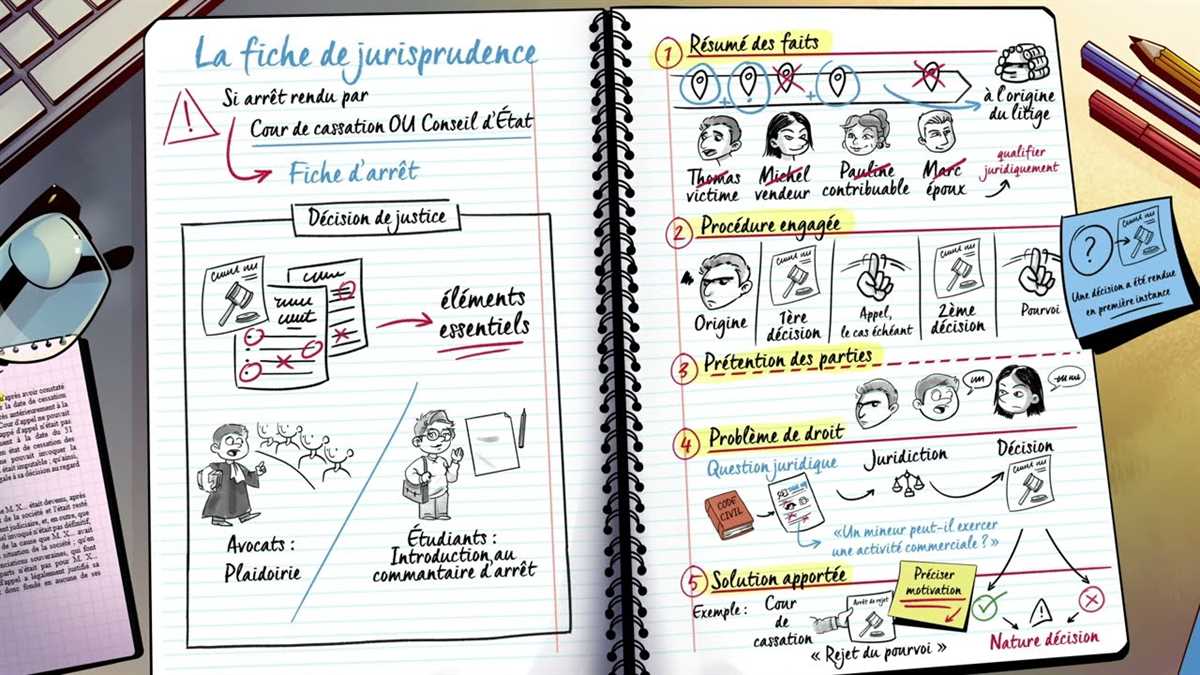 La fiche de jurisprudence
Si arrêt rendu par
Cour de cassation OU Conseil d'État
Fiche d'arrêt
Décision de justice
éléments
essentiels
Avocats :
Plaidoirie
Étudiants :
Introduction au
commentaire d'arrêt
1 Résumé des faits
à l'origine
du litige
Thomas
victime
Michel
vendeur
Pauline
contribuable
Marc
époux
qualifier
juridiquement
2 Procédure engagée
Origine
1ère
décision
Appel,
le cas échéant
2ème
décision
Pourvoi
?
Une décision a été rendue
en première instance
3 Prétention des parties
4 Problème de droit
Question juridique
CODE
CIVIL
Juridiction
Décision
«Un mineur peut-il exercer
une activité commerciale ? »
5 Solution apportée
Exemple :
Cour
de
cassation
Arrêt de rejet
« Rejet du pourvoi »
Préciser
motivation
Nature décision
après avoir constaté
la date de cessation
antérieurement à la
Cour d'appel ne pouvait
appel n'était pas
à la date du 31
en état de cessation des
pouvait invoquer la
était imputable ; qu'ainsi,
sa décision au regard
M. X... était devenu, après
de la société et l'était resté
judiciaire, et, en outre, que
invoqué n'était pas définitif,
de la cause que M. X... avait
situation de la société ; qu'en
souveraines, qui font
n'était pas pour M. X...
d'appel a légalement justifié sa
donc fondé en aucune de ses